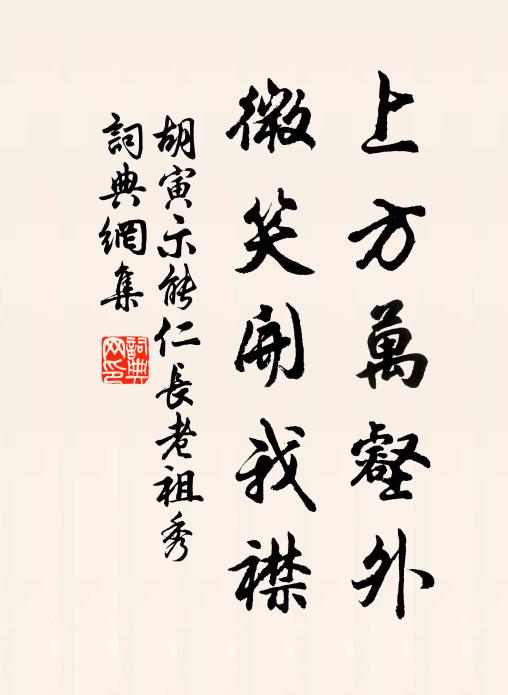 上方萬壑外
微笑開我襟
胡寅示能仁長老祖秀
詞典網集
詞典網印